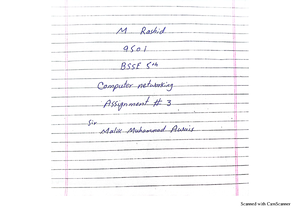 M Rashid
9501
BSSE 5th
Computer networking
Assignment # 3
Sir
Malik Muhammad Awais
Scanned with CamScanner